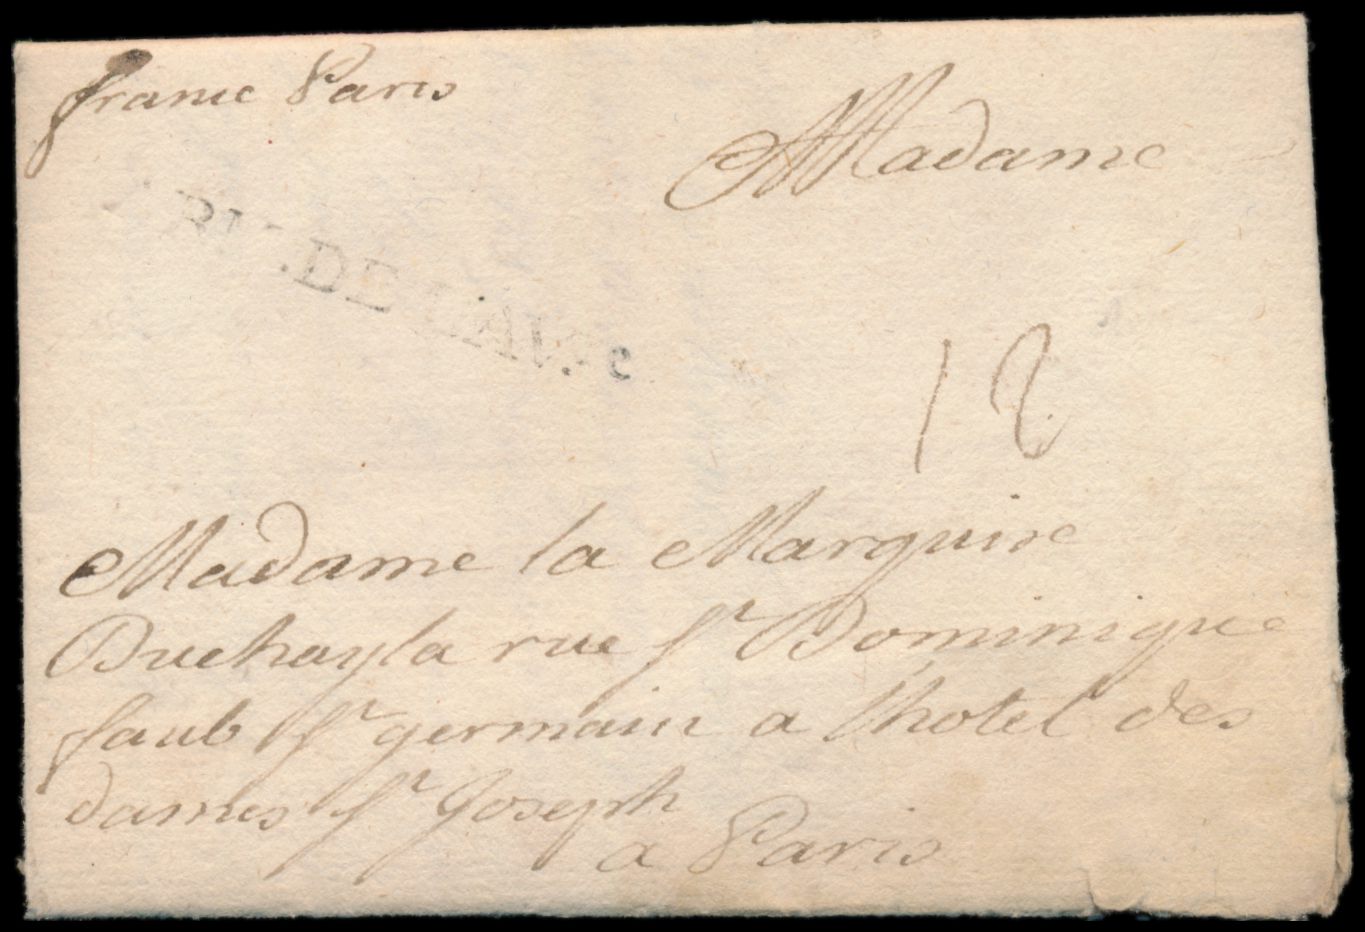 franc Paris
Madame
DE
18
Madame la Marquise
Duchayla rue st Dominique
faub st germain a l'hotel des
dames st Joseph
a Paris